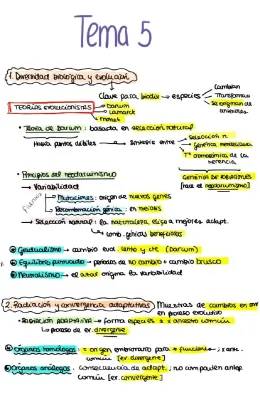 Tema 5
1. Diversidad biológica y evolución
Clave para biodiv → especies
Cambian
Transforman
Se originan de
TEORÍAS EVOLUCIONISTAS
Darwin
Lamarck
• Teoría de Darwin: basada en selección natural
Había puntos débiles → Síntesis entre
Selección n.
Genética mendeliana
Tª cromosómica de la herencia
• Principios del neodarwinismo
→ Variabilidad
Mutaciones: origen de nuevos genes
Recombinación génica: en meiosis
→ Selección natural: la naturaleza elige a mejores adapt.
comb. génicas beneficiosas
Gradualismo → cambio evol. lento y cte (Darwin)
Equilibrio puntuado → periodos de no cambio + cambio brusco
Neutralismo → el azar origina la variabilidad
2. Radiación y convergencia adaptativas
Muestras de cambios en
en proceso evolutivo
• RADIACIÓN ADAPTATIVA → forma especies a x ancestro común
proceso de ev. divergente
Órganos homólogos: = origen embrionario para ≠ funciones
común [ev. divergente]
Órganos análogos: consecuencia de adapt.; no comparten antep
común [ev. convergente]